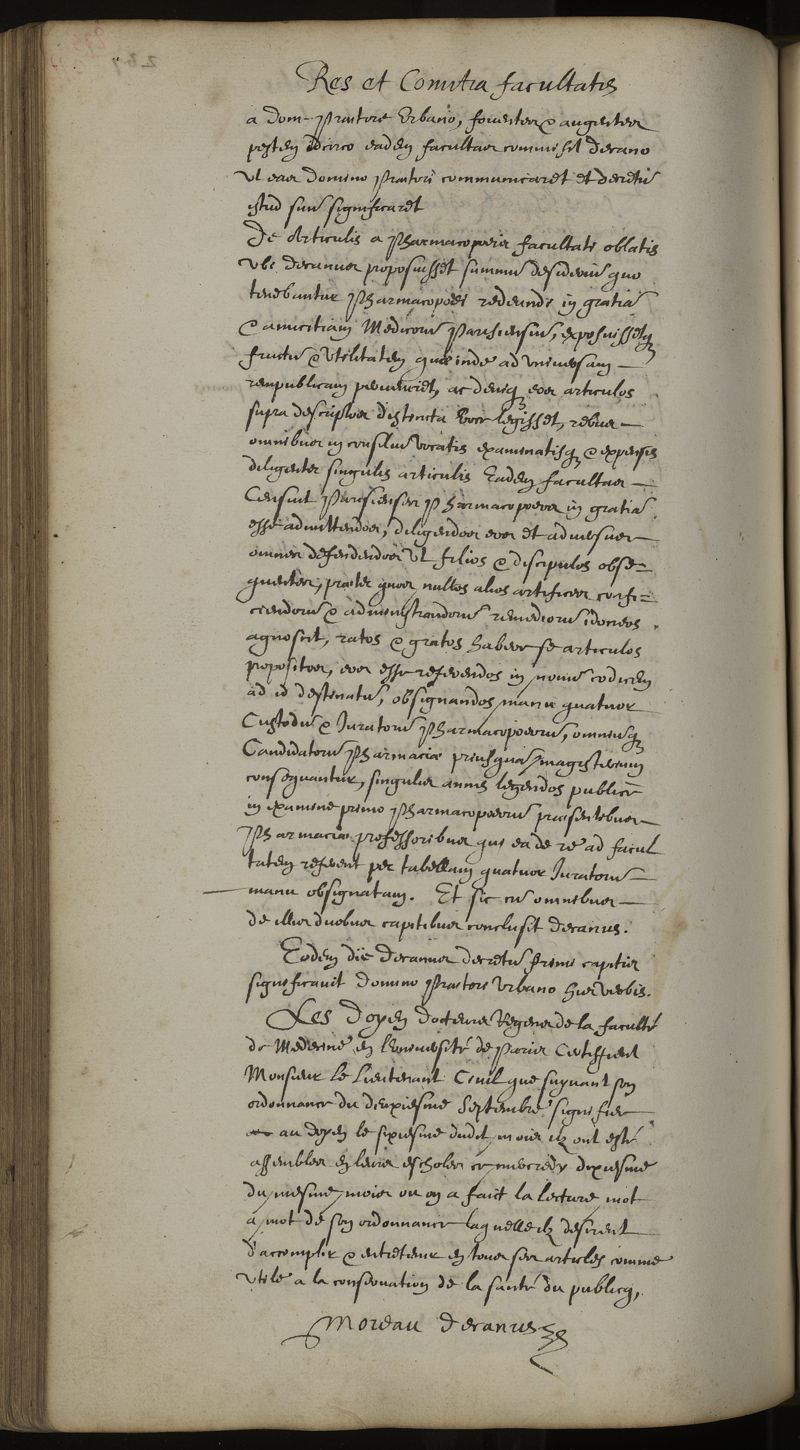 Res et Comitia facultatis
a dom. Prætore Urbano, foventes & augentes
pestem idcirco eadem facultas commisit decano
ut eas domino Prætori communicaret et decretū
istud suū significaret
De Articulis a Pharmacopæis facultati oblatis
ubi decanus proposuisset summū desideriū quo
tenebantur Pharmacopœi redeundi in gratiā
& amicitiam Medicorū Parisiensiū, exposuissetq
fructū & utilitatem quæ inde ad universam
rempublicam perveniret, ac deniq eos articulos
supra descriptos distincta voce legisset, rebus
omnibus in consiliū vocatis examinatisq & expensis
diligenter singulis articulis Eadem facultas
Censuit Parisienses Pharmacopœos in gratiā
esse admittendos, diligendos eos et adversus
omnes defendendos ut filios & discipulos obse-
quentes, præter quos nullos alios artifices confi-
ciendorū & administrandorū remediorū idoneos
agnoscit, ratos & gratos habere se articulos
propositos, eos esse referendos in novū codicem
ad id destinatū, obsignandos manu quatuor
Custodū & Juratorū Pharmacopœorū, omniūq
Candidatorū Pharmaciæ priusquā magisterium
consequantur, singulis annis legendos publice
in examine primo Pharmacopœorū præsentibus
Pharmaciæ professoribus qui ea de re ad facul
tatem referent per tabellam quatuor Juratorū
manu obsignatam. Et sic cū omnibus
de illis duobus capitibus conclusit decanus.
Eodem die decanus decretū primi capitis
significavit domino Prætori Urbano his verbis.
Les Doyen docteurs Regens de la faculté
de Medecine en l'Université de Paris Certifient
Monsieur le Lieutenant Civil que suyvant son
ordonnance du deuxiesme Septembre signifiee
au doyen le sixiesme dudit mois ilz ont esté
assemblez en leurs escholes ce mercredy dixiesme
du mesme mois ou on a faict la lecture mot
a mot de son ordonnance laquelle ilz desirent
d'accomplir & entretenir en tous ses articles comme
utile a la conservation de la santé du publicq,
Moreau decanus